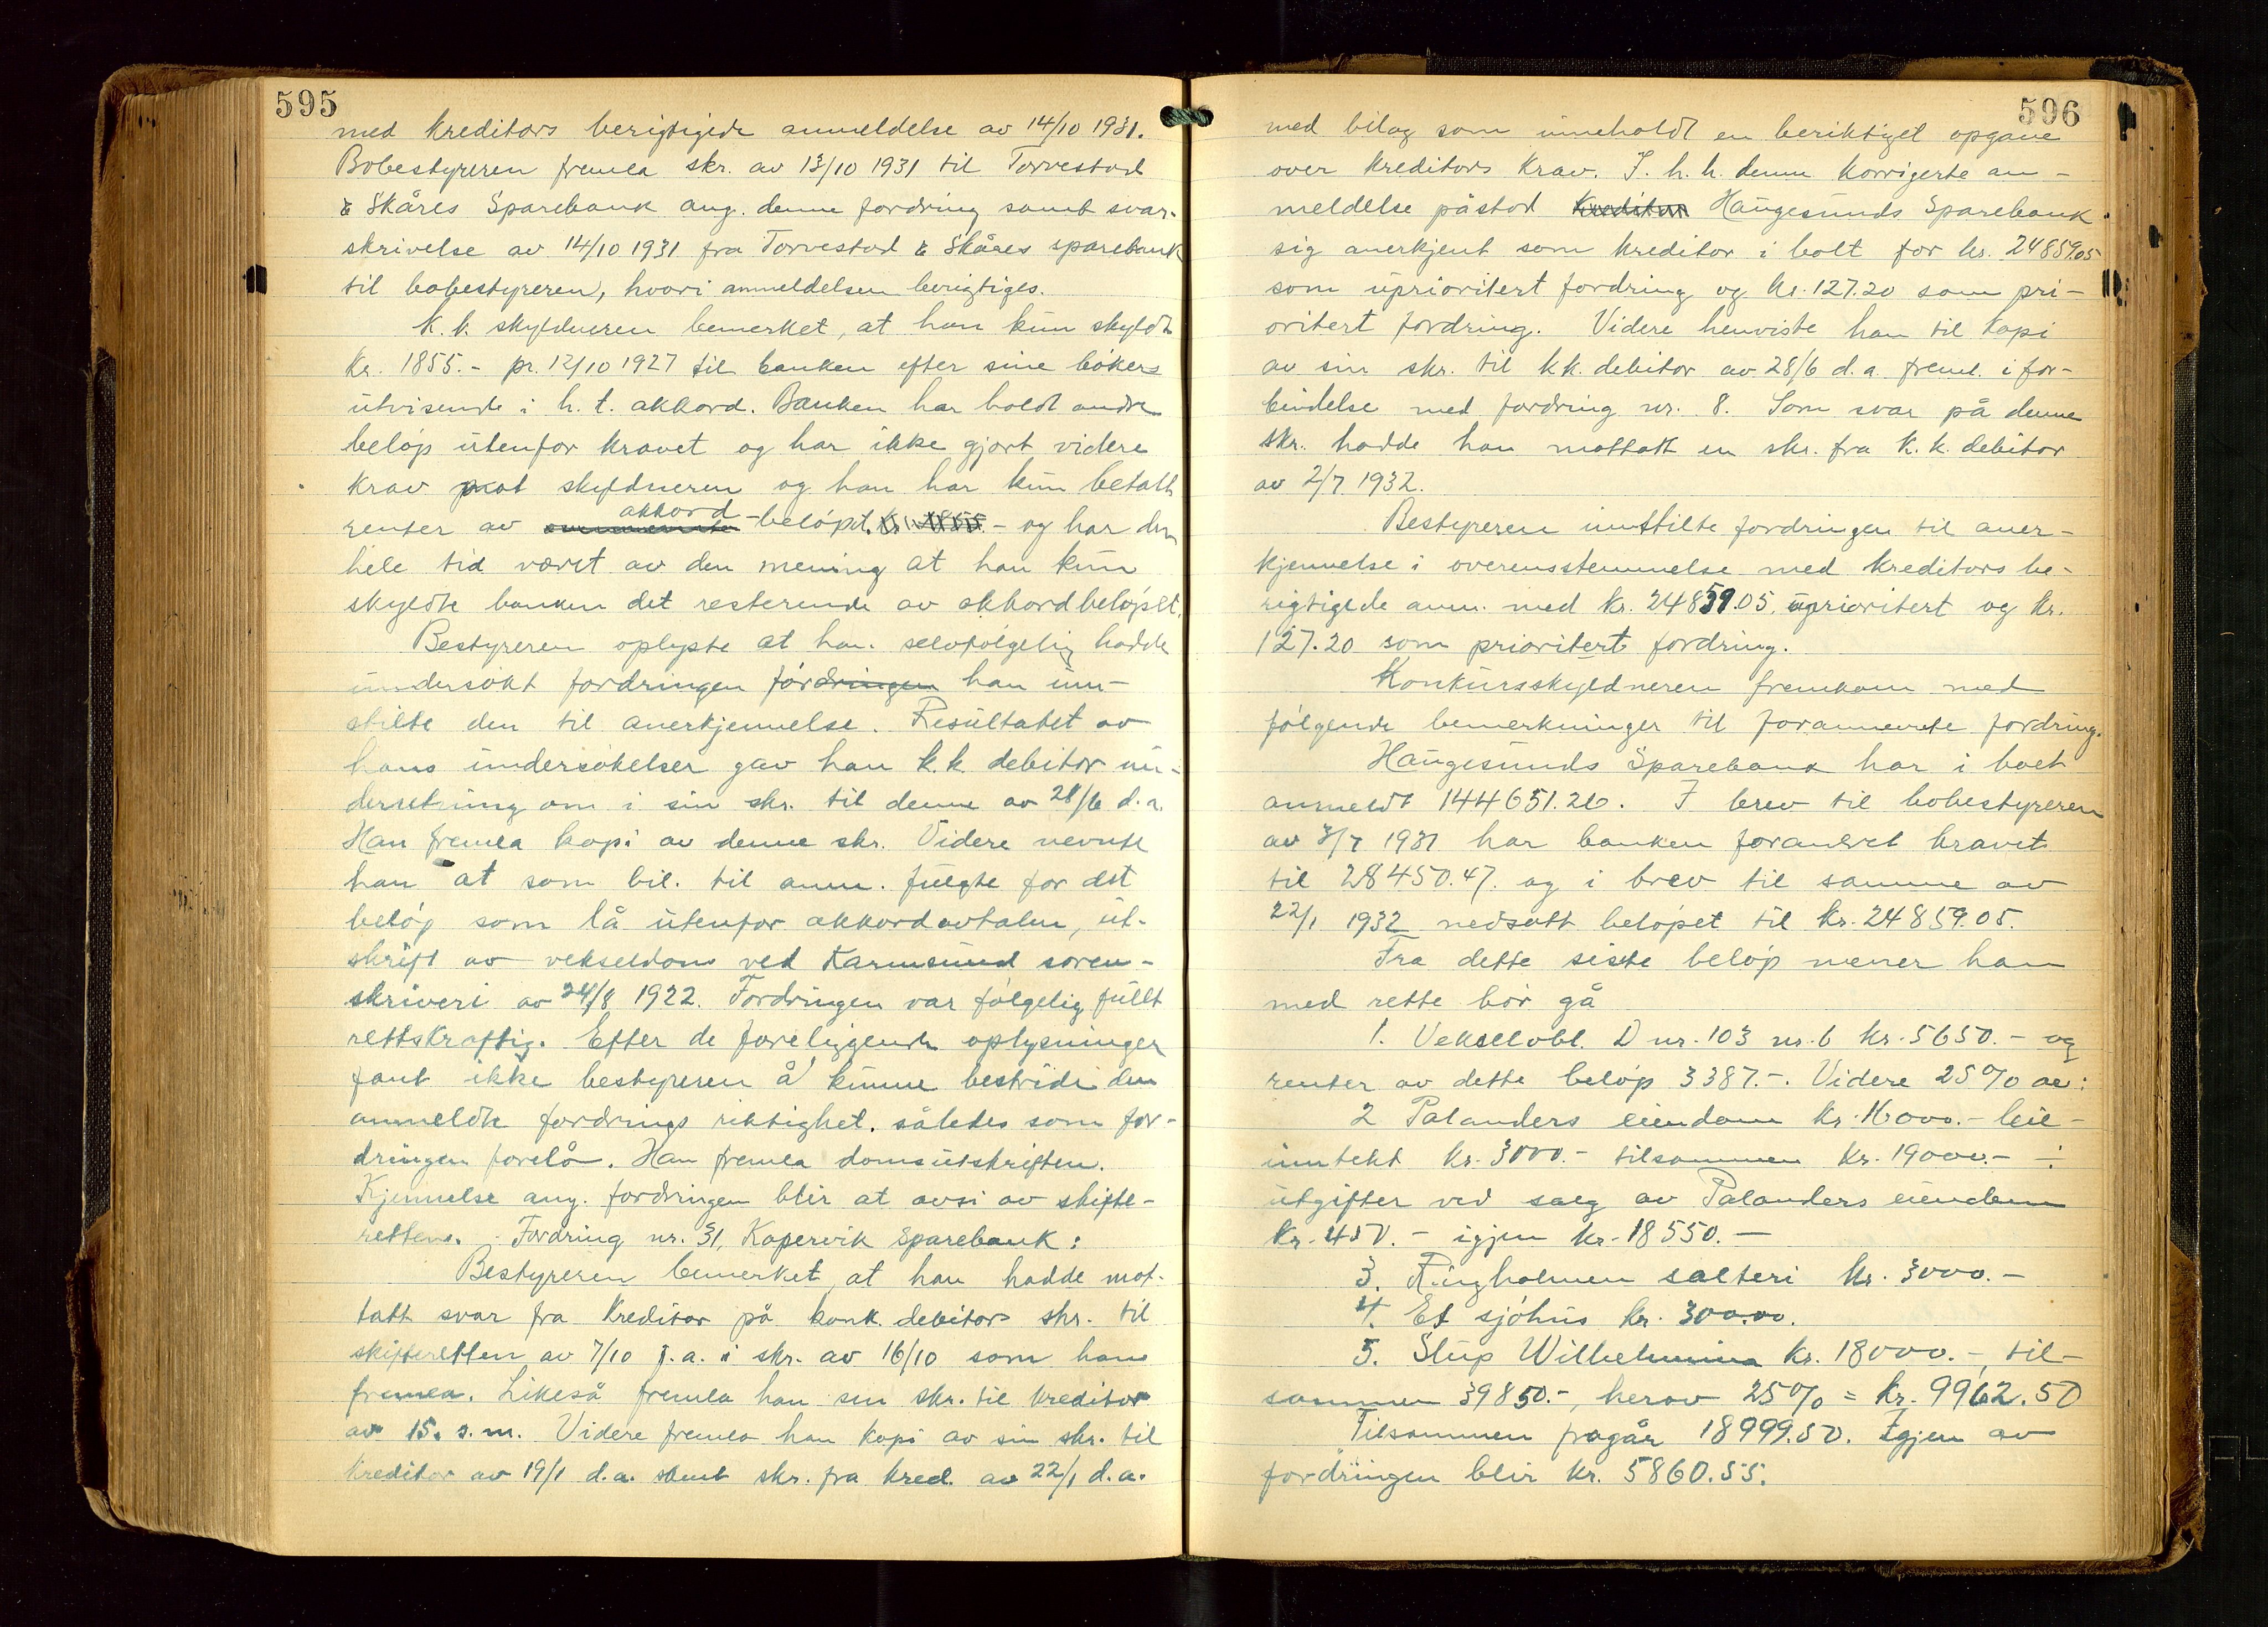 595
med kreditors berigtigede anmeldelse av 14/10 1931.
Bobestyreren fremla skr. av 13/10 1931 til Torvestad
& Skåres Sparebank ang. denne fordring samt svar-
skrivelse av 14/10 1931 fra Torvestad & Skåres sparebank
til bobestyreren, hvori anmeldelsen berigtiges.
K.k. skyldneren bemerket, at han kun skyldte
Kr. 1855.- pr. 12/10 1927 til banken efter sine bøkers
utvisende i h. t. akkord. Banken har holdt andre
beløp utenfor kravet og har ikke gjort videre
krav mot skyldneren og han har kun betalt
renter av akkord-beløpet kr. 1855.- og har den
hele tid været av den mening at han kun
skyldte banken det resterende av akkordbeløpet.
Bestyreren oplyste at han selvfølgelig hadde
undersøkt fordringen før fordringen han inn-
stilte den til anerkjennelse. Resultatet av
hans undersøkelser gav han k.k. debitor un-
derretning om i sin skr. til denne av 28/6 d.a.
Han fremla kopi av denne skr. Videre nevnte
han at som bil. til anm. fulgte for det
beløp som lå utenfor akkordavtalen, ut-
skrift av vekseldom ved Karmsund soren-
skriveri av 24/8 1922. Fordringen var følgelig fullt
rettskraftig. Efter de foreliggende oplysninger
fant ikke bestyreren å kunne bestride den
anmeldte fordrings riktighet, således som for-
dringen forelå. Han fremla domsutskriften.
Kjennelse ang. fordringen blir at avsi av skifte-
retten. - Fordring nr. 31, Kopervik Sparebank:
Bestyreren bemerket, at han hadde mot-
tatt svar fra kreditor på konk. debitors skr. til
skifteretten av 7/10 f.a. i skr. av 16/10 som han
fremla. Likeså fremla han sin skr. til kreditor
av 15. s.m. Videre fremla han kopi av sin skr. til
kreditor av 19/1 d.a. samt skr. fra kred. av 22/1 d.a.
596
med bilag som inneholdt en beriktiget opgave
over kreditors krav. I. h. h. denne korrigerte an-
meldelse påstod kreditor Haugesunds Sparebank
sig anerkjent som kreditor i boet for kr. 24859.05
som uprioritert fordring og kr. 127.20 som pri-
oritert fordring. Videre henviste han til kopi
av sin skr. til k.k. debitor av 28/6 d.a. freml. i for-
bindelse med fordring nr. 8. Som svar på denne
skr. hadde han mottatt en skr. fra k.k. debitor
av 2/7 1932.
Bestyreren innstilte fordringen til aner-
kjennelse i overensstemmelse med kreditors be-
rigtigede anm. med kr. 24859.05 uprioritert og kr.
127.20 som prioritert fordring.
Konkursskyldneren fremkom med
følgende bemerkninger til forannevnte fordring.
Haugesunds Sparebank har i boet
anmeldt 144651.26. I brev til bobestyreren
av 3/7 1931 har banken forandret kravet
til 28450.47. og i brev til samme av
22/1 1932 nedsatt beløpet til kr. 24859.05.
Fra dette siste beløp mener han
med rette bør gå
1. Vekselobl. D nr. 103 nr. 6 kr. 5650.- og
renter av dette beløp 3387.-. Videre 25% av:
2 Palanders eiendom kr. 16000.- leie-
inntekt kr. 3000.- tilsammen kr. 19000.- ÷
utgifter ved salg av Palanders eiendom
kr. 450.- igjen kr. 18550.-
3. Ringholmen salteri kr. 3000.-
4. Et sjøhus kr. 300.00.
5. Slup Wilhelmina kr. 18000.-, til-
sammen 39850.-, herav 25% = kr. 9962.50
Tilsammen fragår 18999.50. Igjen av
fordringen blir kr. 5860.55.